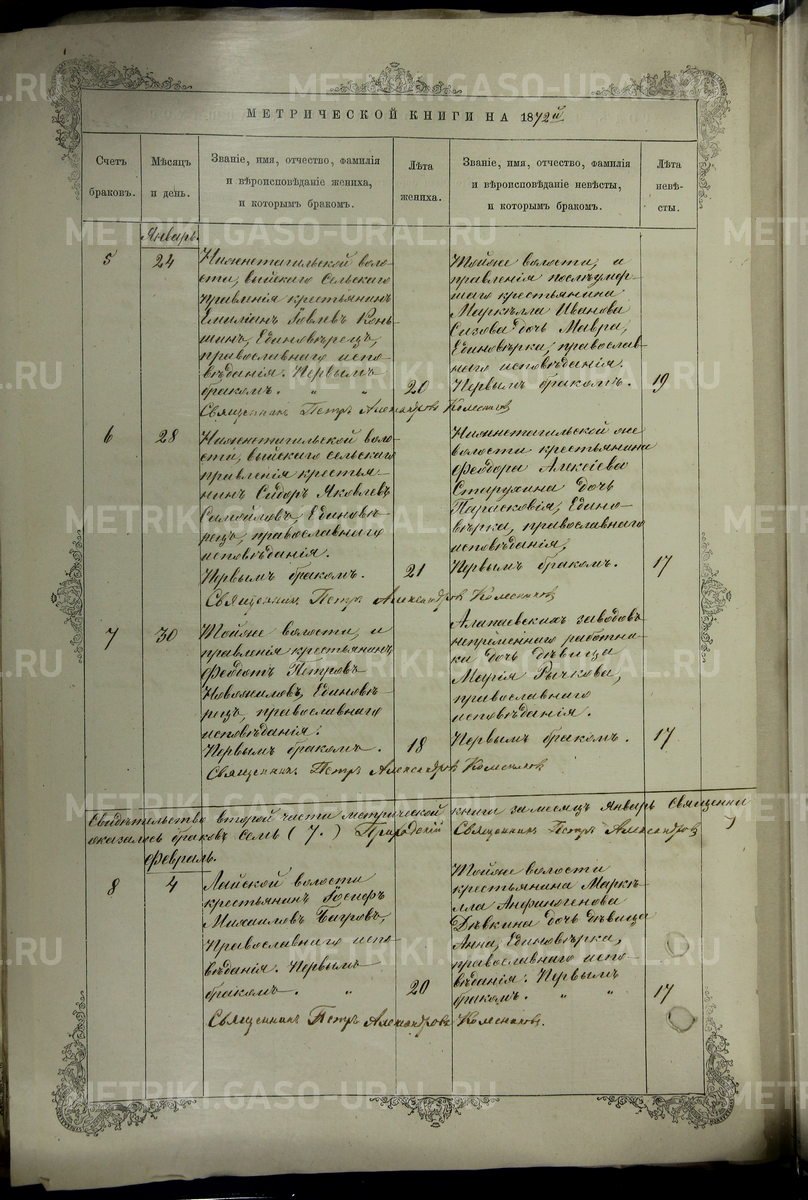 МЕТРИЧЕСКОЙ КНИГИ НА 1872й
Счетъ
браковъ.
Мѣсяцъ
и день.
Званіе, имя, отчество, фамилія
и вѣроисповѣданіе жениха,
и которымъ бракомъ.
Лѣта
жениха.
Званіе, имя, отчество, фамилія
и вѣроисповѣданіе невѣсты,
и которымъ бракомъ.
Лѣта
невѣ-
сты.
Январь.
5
24
Нижнетагильской воло-
сти, выйскаго Сельскаго
правленія крестьянинъ
Емиліанъ Іовлевъ Конь-
шинъ, Единовѣрецъ,
православнаго испо-
вѣданія. Первымъ
бракомъ. " "
20
Тойже волости, и
правленія послѣумер-
шаго крестьянина
Маркѣлла Иванова
Сизова дочь Мавра,
Единовѣрка, православ-
наго исповѣданія.
Первымъ бракомъ.
19
Священникъ Петръ Александровъ
6
28
Нижнетагильской воло-
сти, выйскаго сельскаго
правленія крестья-
нинъ Сидоръ Яковлевъ
Самойловъ, Единовѣ-
рецъ, православнаго
исповѣданія.
Первымъ бракомъ.
21
Нижнетагильской же
волости крестьянина
Феодора Алексіева
Старухина дочь
Парасковія, Едино-
вѣрка, православнаго
исповѣданія,
Первымъ бракомъ.
17
Священникъ Петръ Александровъ
7
30
Тойже волости, и
правленія крестьянинъ
Феодотъ Петровъ
Новожиловъ, Единовѣ-
рецъ, православнаго
исповѣданія.
Первымъ бракомъ.
18
Алапаевскихъ заводовъ
непремѣннаго работни-
ка дочь дѣвица
Марія Рычкова,
православнаго
исповѣданія.
Первымъ бракомъ.
17
Священникъ Петръ Александровъ
Свидѣтельство второй части метрической книги за месяцъ Январь
оказалось браковъ семь (7.) Священникъ Петръ Александровъ
Февраль.
8
4
Лайской волости
крестьянинъ Іосифъ
Михаиловъ Багровъ,
Православнаго испо-
вѣданія. Первымъ
бракомъ. "
20
Тойже волости
крестьянина Маркѣ-
лла Анфиногенова
Дѣвкина дочь дѣвица
Анна, Единовѣрка,
православнаго испо-
вѣданія. Первымъ
бракомъ. " "
17
Священникъ Петръ Александровъ
METRIKI.GASO-URAL.RU